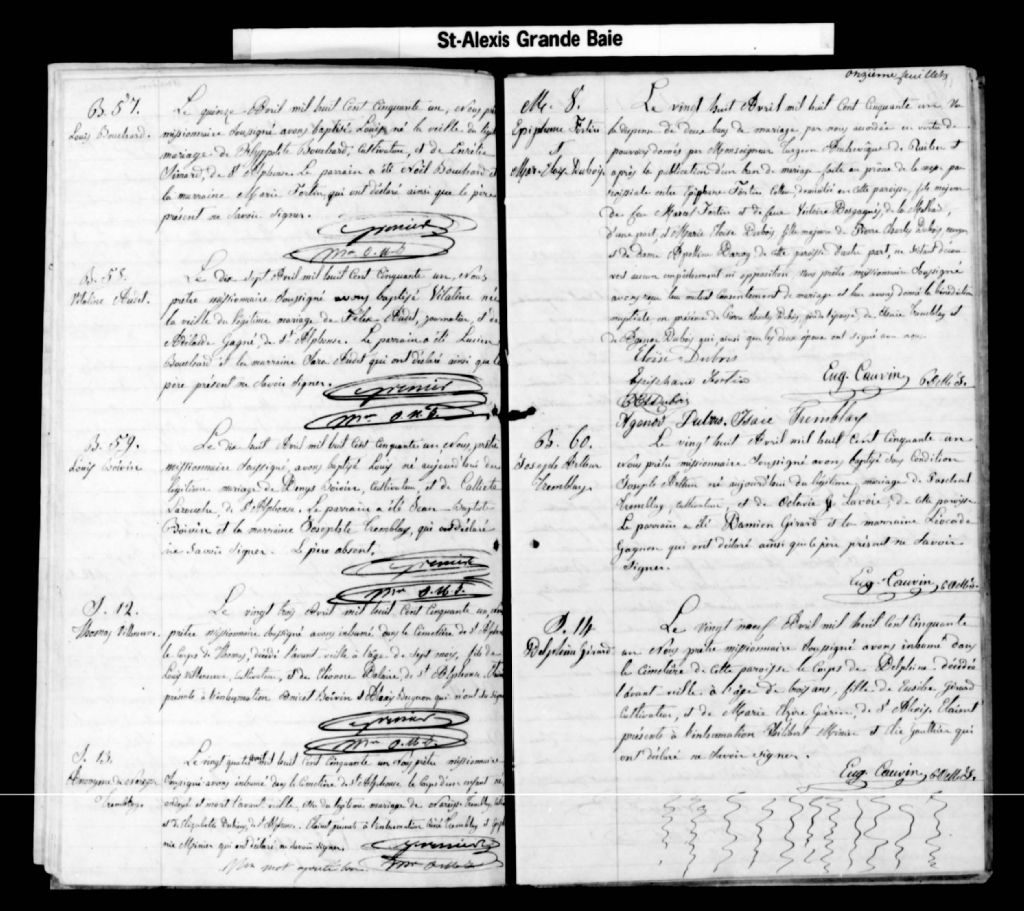 St-Alexis Grande Baie
B. 57.
Louis Bouchard.
Le quinze Avril mil huit Cent Cinquante un, Nous
missionnaire Soussigné avons baptisé Louis né la veille du
mariage de Hyppolite Bouchard, Cultivateur, et de
Simard, de St Alphonse. Le parrain a été Noël Bouchard et
la marraine Marie Fortin, qui ont déclaré ainsi que le père
présent ne Savoir Signer.
Grenier
Mre O.M.I.
B. 58.
Vitaline Audet.
Le dix Sept Avril mil huit Cent Cinquante un, Nous
prêtre missionnaire Soussigné avons baptisé Vitaline née
la veille du légitime mariage de Félix Audet, journalier, et de
Adélaïde Gagné, de St Alphonse. Le parrain a été Lucien
Bouchard et la marraine Sara Audet qui ont déclaré ainsi que le
père présent ne Savoir Signer.
Grenier
Mre O.M.I.
B. 59.
Louis Boivin
Le dix huit Avril mil huit Cent Cinquante un Nous, prêtre
missionnaire Soussigné, avons baptisé Louis né aujourd'hui du
légitime mariage de Denys Boivin, Cultivateur, et de Calixte
Larouche, de St Alphonse. Le parrain a été Jean-Baptiste
Boivin et la marraine Josephte Tremblay, qui ont déclaré
ne Savoir Signer. Le père absent.
Grenier
Mre O.M.I.
S. 12.
Thomas Villeneuve.
Le vingt trois Avril mil huit Cent Cinquante un,
prêtre missionnaire Soussigné avons inhumé dans le Cimetière de St Alphonse
le Corps de Thomas, décédé l'avant veille à l'âge de Sept mois, fils de
Louis Villeneuve, Cultivateur, et de Eléonore Dalaire, de St Alphonse.
présents à l'inhumation Amicet Boivin et Denis Gagnon qui n'ont Su signer
Grenier
Mre O.M.I.
S. 13.
Anonyme de Narcisse
Tremblay.
Le vingt quatre Avril mil huit Cent Cinquante un Nous prêtre missionnaire
Soussigné avons inhumé dans le Cimetière de St Alphonse le Corps d'un enfant né,
ondoyé et mort l'avant veille, du légitime mariage de Narcisse Tremblay
et de Elizabeth de St Alphonse. Etaient présents à l'inhumation Tremblay et
Minier qui ont déclaré ne savoir signer.
Grenier
Mre O.M.I.
mot ajouté bon
onzième feuillet
M. 8.
Epiphane Fortin
et
Mar. Eloïse Dubois.
Le vingt huit Avril mil huit Cent Cinquante un Vu
la dispense de deux bans de mariage par nous accordée en vertu de
pouvoirs donnés par Monseigneur Turgeon Archevêque de Québec et
après la publication d'un ban de mariage faite au prône de la messe pa
roissiale entre Epiphane Fortin domicilié en cette paroisse, fils majeur
de feu Marcel Fortin et de feue Victoire Desgagnés, de la Malbaie,
d'une part, et Marie Eloïse Dubois fille majeure de Pierre Charles Dubois
et de dame Apolline de cette paroisse d'autre part, ne s'étant décou
vert aucun empêchement ni opposition Nous prêtre missionnaire Soussigné
avons reçu leur mutuel Consentement de mariage et leur avons donné la bénédiction
nuptiale en présence de Pierre Charles Dubois, père de l'épouse, de Isaïe Tremblay et
de Agenor Dubois qui, ainsi que les deux époux ont signé avec nous.
Eloïse Dubois
Epiphane Fortin
Eug. Cauvin O.M.I.
PC Dubois
Agenor Dubois. Isaie Tremblay
B. 60.
Joseph Arthur
Tremblay
Le vingt huit Avril mil huit Cent Cinquante un
Nous prêtre missionnaire Soussigné avons baptisé Sous Condition
Joseph Arthur né aujourd'hui du légitime mariage de Paschal
Tremblay, cultivateur, et de Octavie Lavoie, de cette paroisse.
Le parrain a été Damien Girard et la marraine Léocade
Gagnon qui ont déclaré ainsi que le père présent ne Savoir
Signer.
Eug. Cauvin O.M.I.
S. 14
Delphine Girard
Le vingt neuf Avril mil huit Cent Cinquante
un Nous prêtre missionnaire Soussigné avons inhumé dans
le Cimetière de cette paroisse le Corps de Delphine décédée
l'avant veille à l'âge de trois ans, fille de Eusèbe Girard
Cultivateur, et de Marie Guérin, de St Alexis. Etaient
présents à l'inhumation Philbert Minier et Elie Gauthier qui
ont déclaré ne Savoir Signer.
Eug. Cauvin O.M.I.